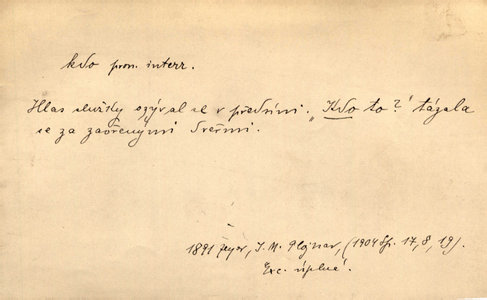 kdo pron. interr.
Hlas služky ozýval se v předsíni. „Kdo to?‘ tázala
se za zavřenými dveřmi.
1891 Zeyer, J. M. Plojhar, (1904 Sp. 17, 8, 19).
Exc. úplné.